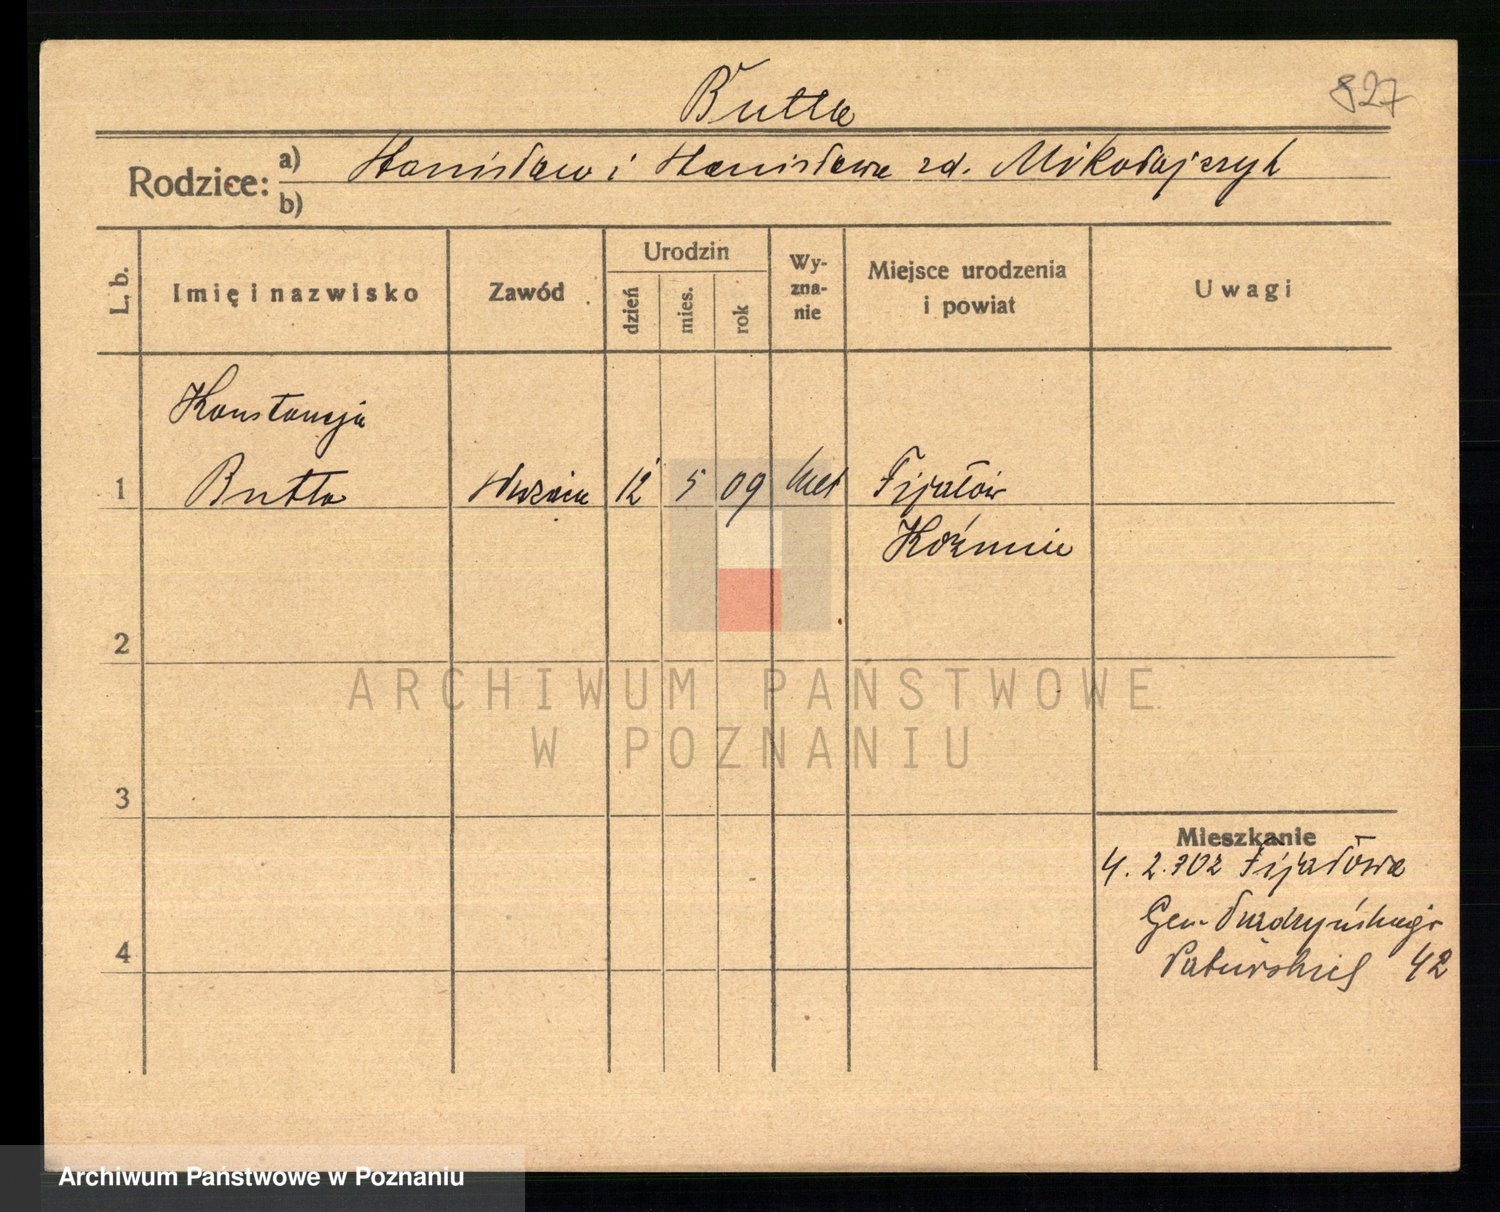 Butla
827
Rodzice: a) Stanisław i Stanisława zd. Mikołajczyk
b)
L. b.
Imię i nazwisko
Zawód
Urodzin
dzień
mies.
rok
Wy-
zna-
nie
Miejsce urodzenia
i powiat
Uwagi
Konstancja
1 Butla 12 5 09 Fijałów
Koźmin
2
3
4
Mieszkanie
4. 2. 302 Fijałowa
Gen.
42
ARCHIWUM PAŃSTWOWE
W POZNANIU
Archiwum Państwowe w Poznaniu